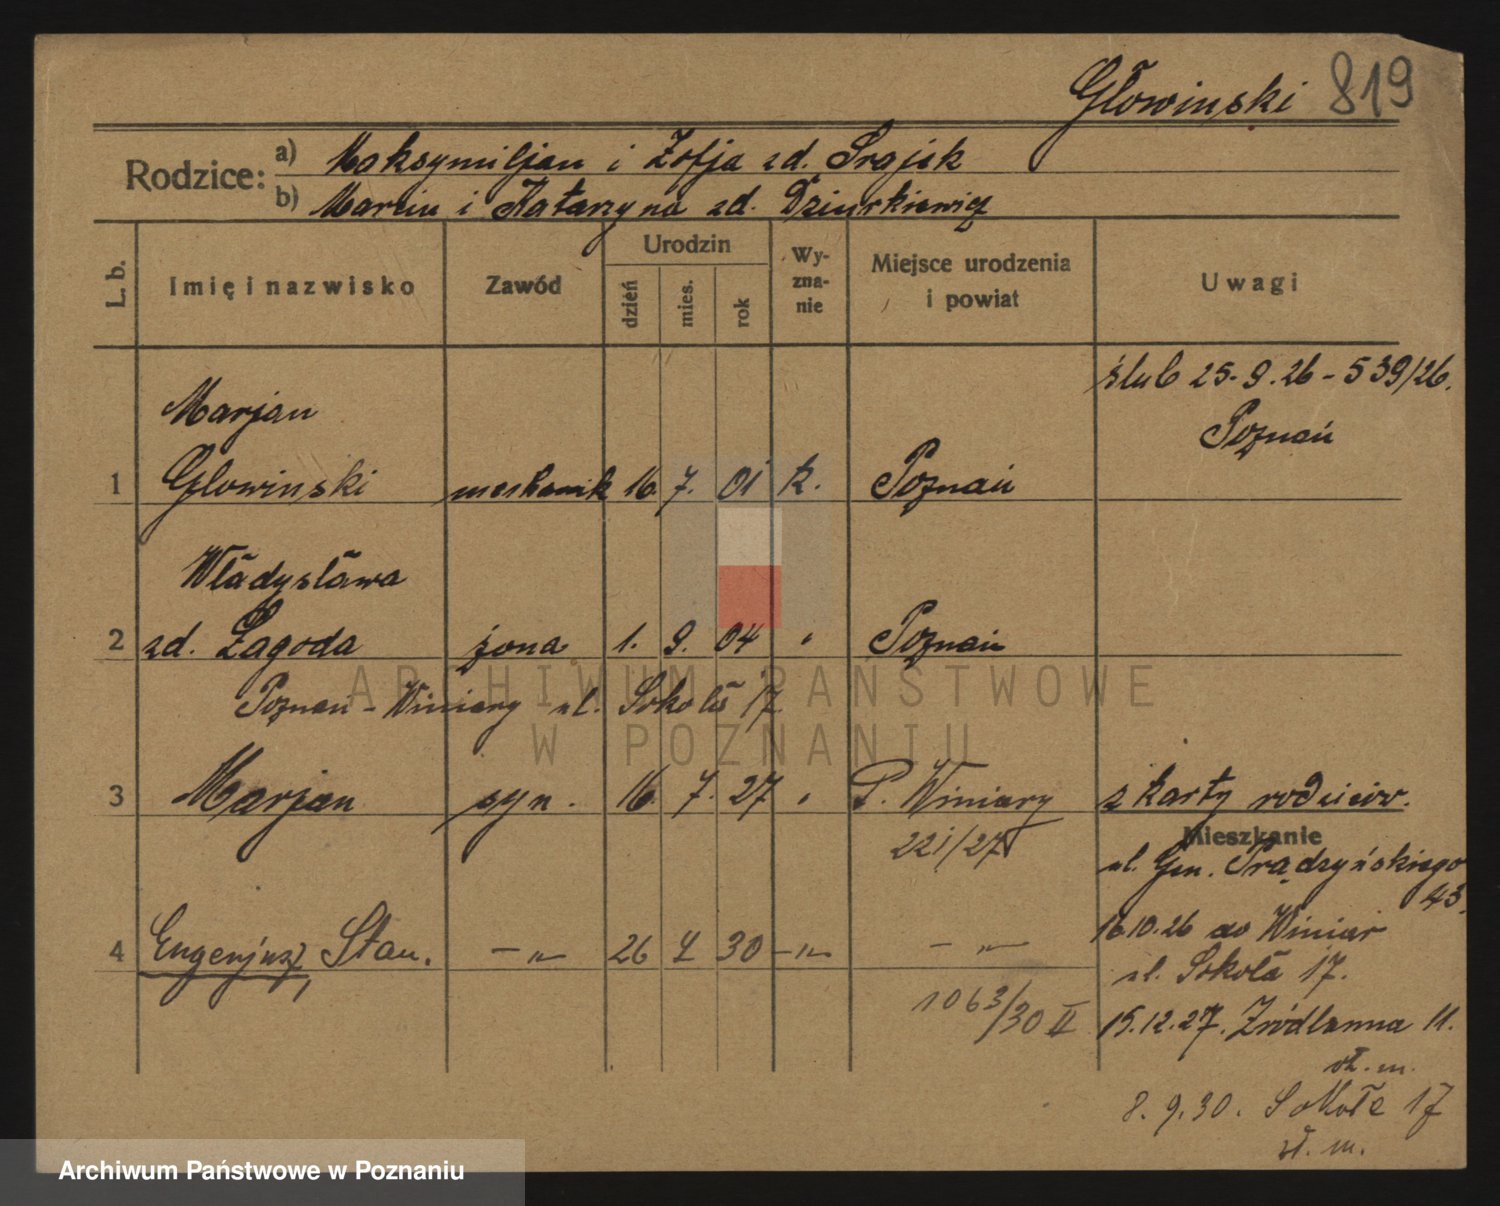 Głowinski 819
Rodzice: a) Maksymiljan i Zofja zd. Srajek
b) Marcin i Katarzyna zd. Dziurkiewicz
L. b. Imię i nazwisko Zawód Urodzin dzień mies. rok Wy-zna-nie Miejsce urodzenia i powiat Uwagi
ślub 25.9.26 - 539/26.
Marjan Poznań
1 Glowinski mechanik 16. 7. 01 k. Poznań
Władysława
2 zd. Łagoda żona 1. 9. 04 " Poznań
Poznań - Winiary ul. Sokoła 17.
3 Marjan syn. 16. 7. 27 " P. Winiary z karty rodziców.
221/27 Mieszkanie
ul. Gen. Prądzyńskiego
43.
16.10.26 do Winiar
4 Eugenjusz, Stan. -"- 26 30 -"- -"-
ul. Sokoła 17.
1063/30 II 15.12.27. Źródlanna 11.
8.9.30. Sokoła 17
ARCHIWUM PAŃSTWOWE
W POZNANIU
Archiwum Państwowe w Poznaniu